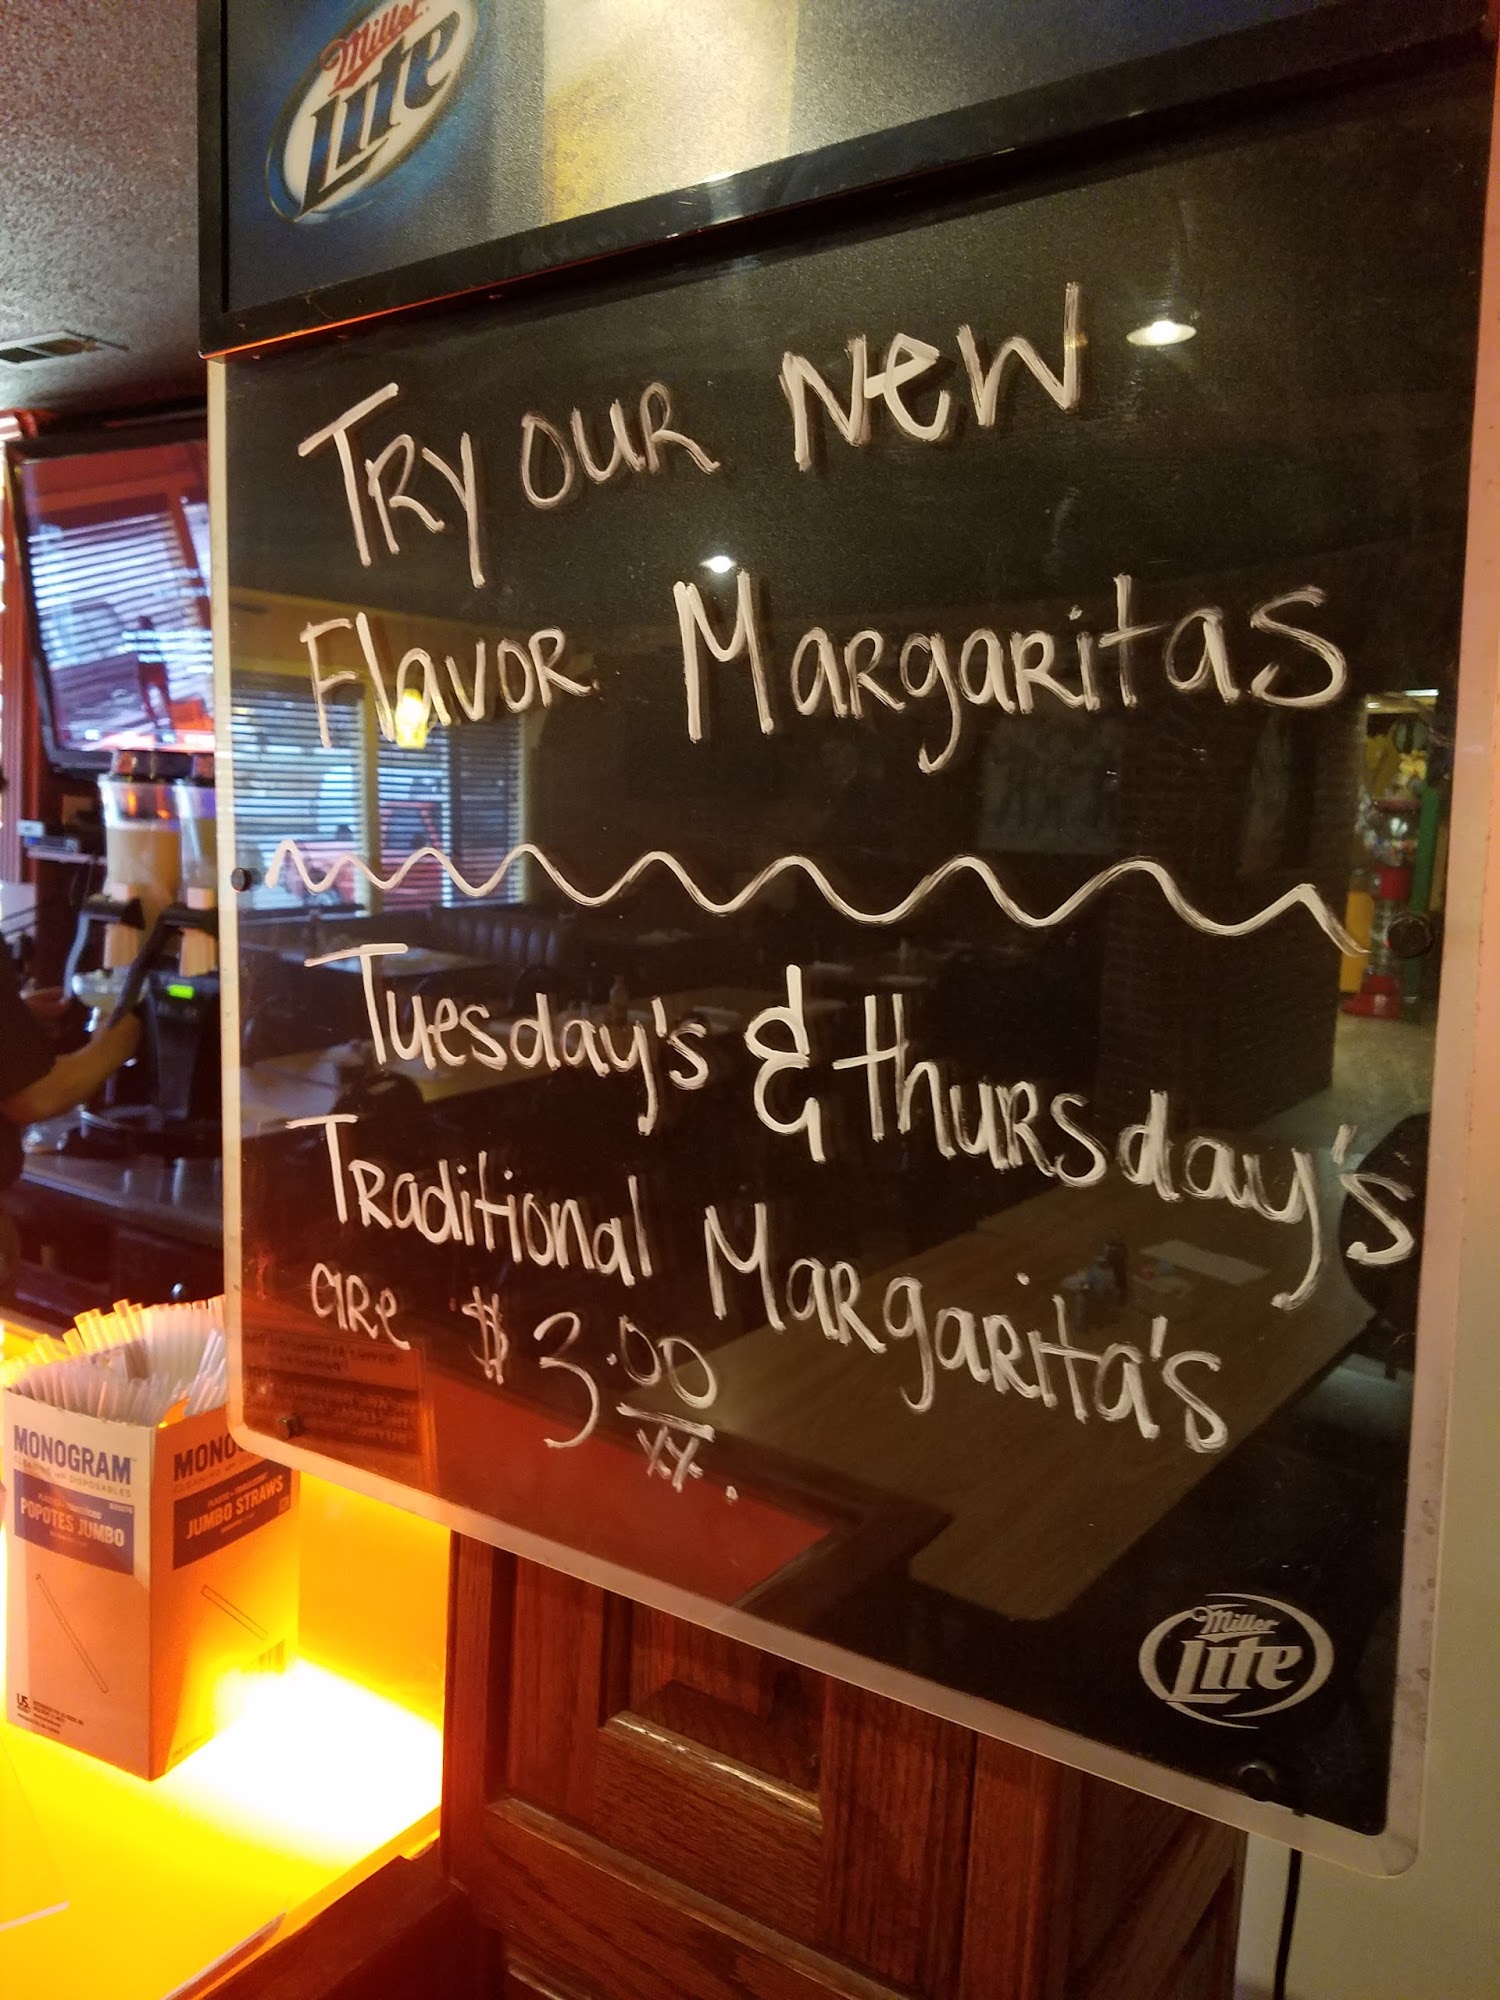 Miller
Lite
TRY OUR New
Flavor Margaritas
Tuesday's & thursday's
Traditional Margarita's
are $3.00
xx.
Miller
Lite
MONOGRAM
CLEANING AND DISPOSABLES
POPOTES JUMBO
MONO
JUMBO STRAWS
US